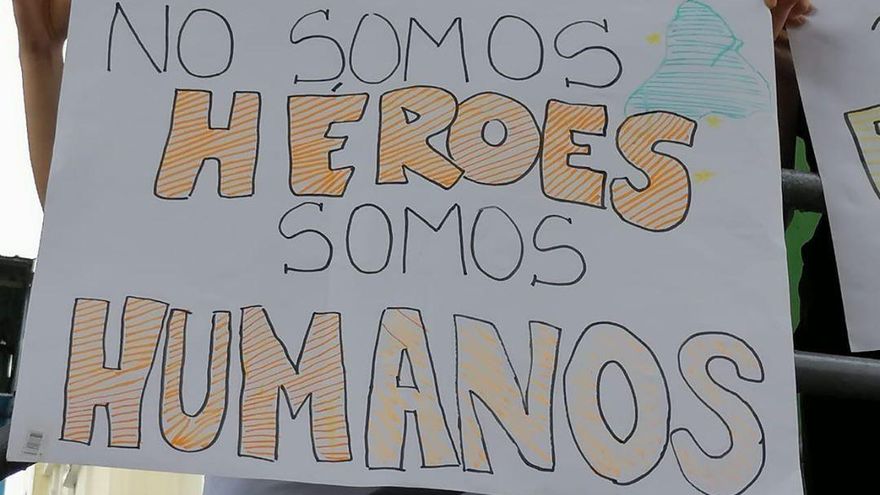 NO SOMOS
HÉROES
SOMOS
HUMANOS